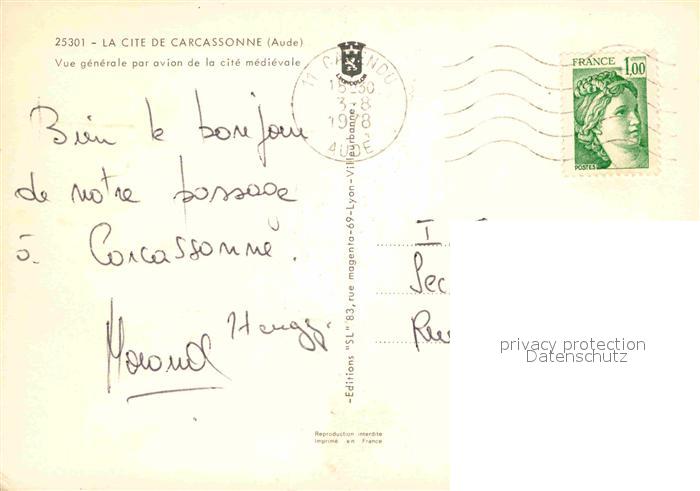 25301 - LA CITE DE CARCASSONNE (Aude)
Vue générale par avion de la cité médiévale
LYONCOLOR
11
15-30
3-8
1978
AUDE
FRANCE
1,00
POSTES
Bien le bonjour
de notre passage
à Carcassonne.
Morand
-Editions "SL" 83, rue magenta-69-Lyon-Villeurbanne-
I
Sec
Ru
privacy protection
Datenschutz
Reproduction interdite
Imprimé en France